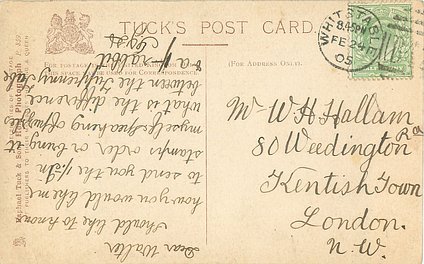 TUCK'S POST CARD
THIS SPACE MAY BE USED FOR CORRESPONDENCE
(FOR ADDRESS ONLY.)
WHITSTABLE
8.45PM
FE 24
05
Mr W H Hallam
80 Weedington Rd
Kentish Town
London.
N.W.
Dear Walter
Should like to know
how you would like me
to send you the
stamps order or bring it
myself. Speaking of puzzle
what is the difference
between the
& a rabbit
Raphael Tuck & Sons